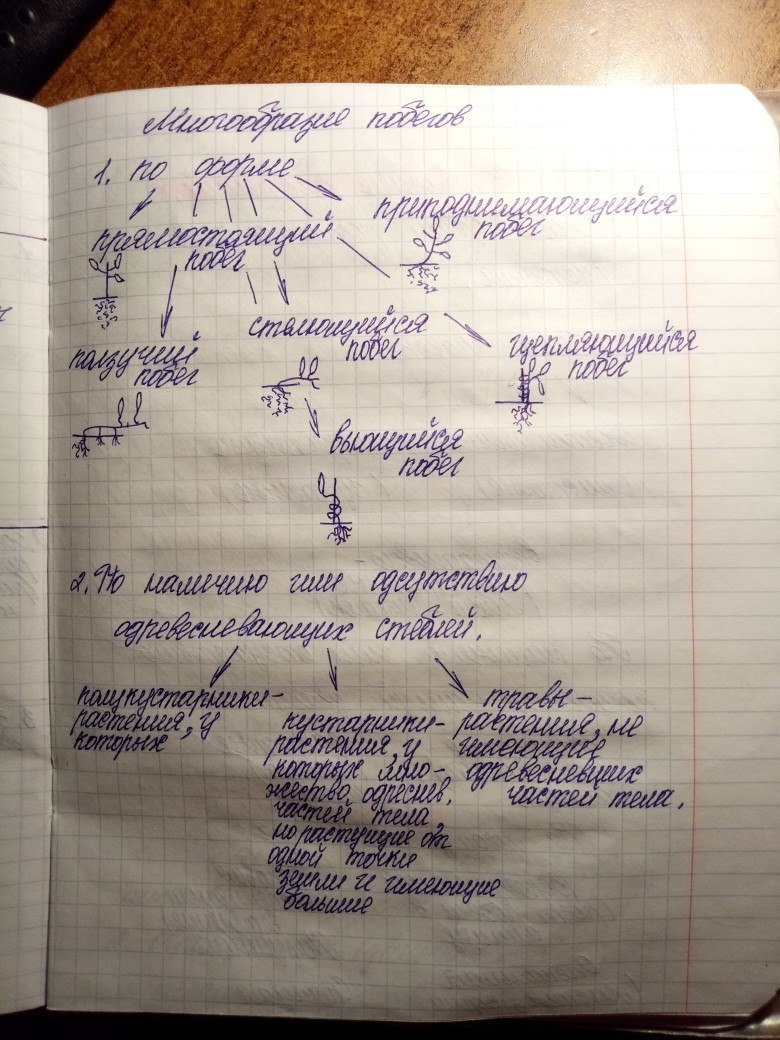 Многообразие побегов
1. по форме
приподнимающийся
побег
прямостоящий
побег
стелющийся
побег
ползучий
побег
цепляющийся
побег
вьющийся
побег
2. По наличию или одсутствию
одревесневающих стеблей.
полукустарники-
растения, у
которых
кустарники-
растения, у
которых мно-
жество одреснев.
частей тела,
но растущие от
одной точки
земли и имеющие
большие
травы-
растения, не
имеющие
одревесневших
частей тела.